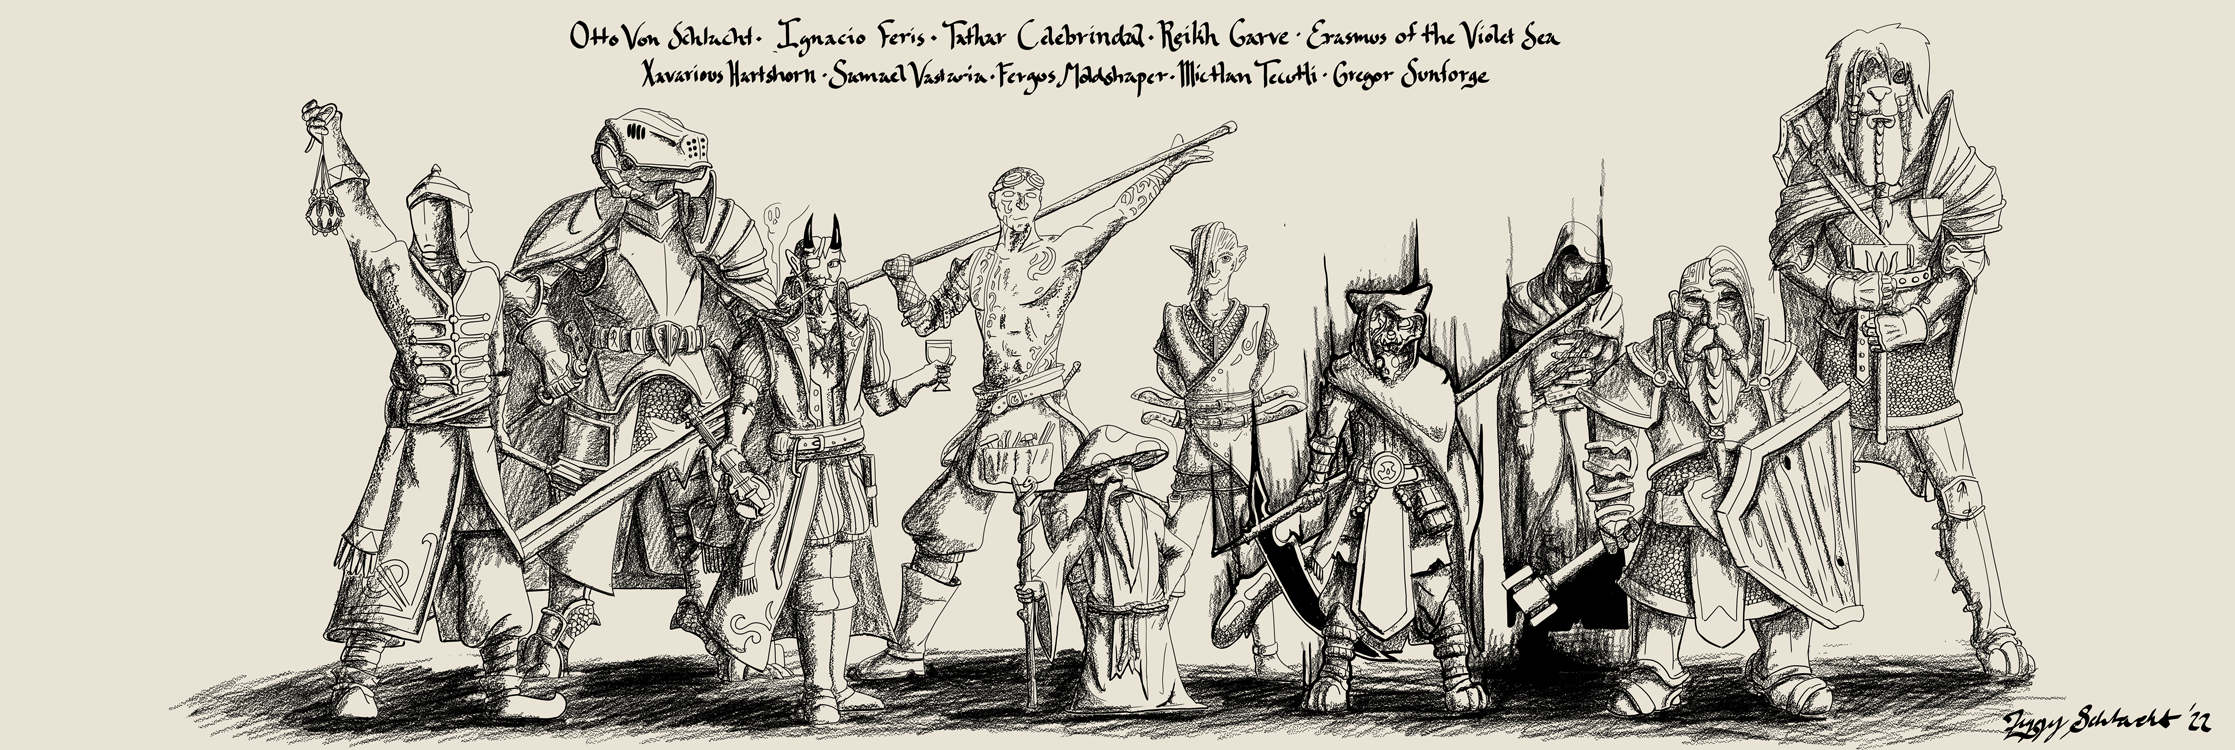 Otto Von Schlacht · Ignacio Feris · Tathar Celebrindal · Reikh Garve · Erasmus of the Violet Sea
Xavarious Hartshorn · Samael Vastaria · Fergus Moldshaper · Mictlan Tecutli · Gregor Sunforge
Schlacht '22